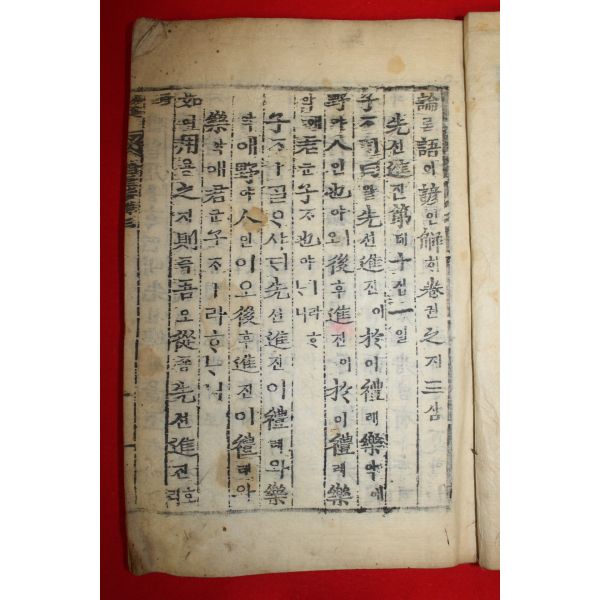 論론語어諺언解ᄒᆡ卷권之지三삼
先션進진第뎨十십一일
子ᄌᆞㅣ曰왈先션進진이於어禮례樂악애
野야人인也야ㅣ오後후進진이於어禮례樂
악애君군子ᄌᆞ也야ㅣ라ᄒᆞᄂᆞ니
子ᄌᆞㅣᄀᆞᆯᄋᆞ샤ᄃᆡ先션進진이禮례와樂
악애野야人인이오後후進진이禮례와
樂악애君군子ᄌᆞㅣ라ᄒᆞᄂᆞ니
如여用용之지則즉吾오從죵先션進진호리